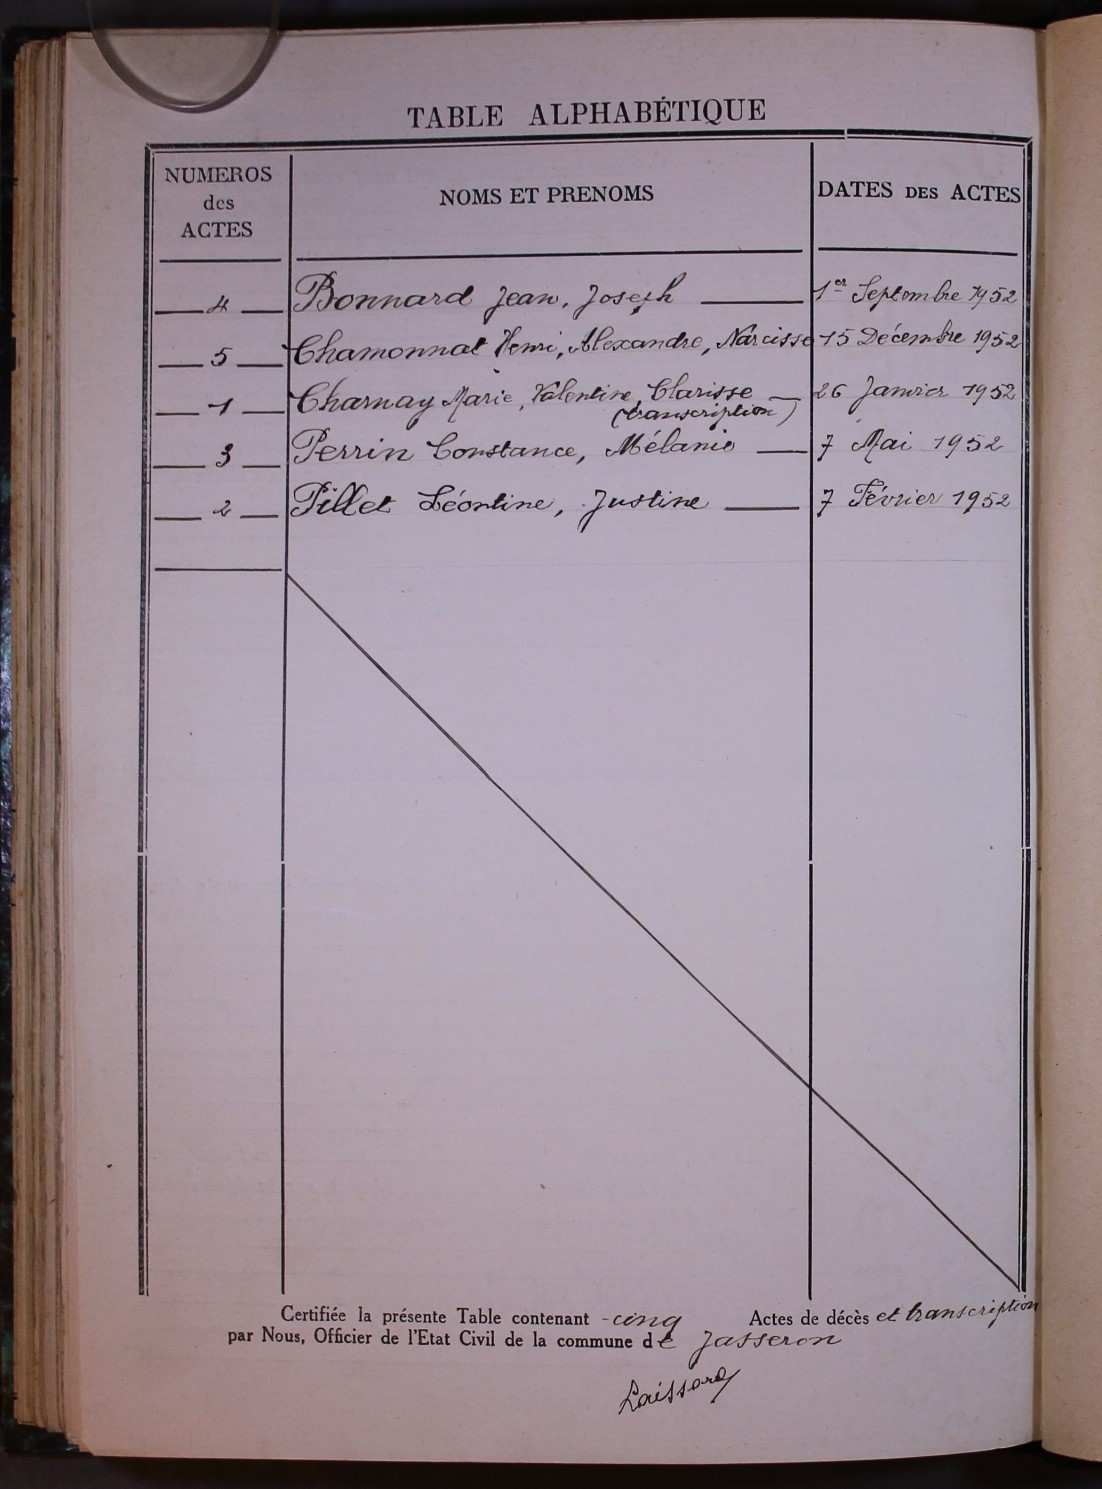 TABLE ALPHABÉTIQUE
NUMEROS
des
ACTES
NOMS ET PRENOMS
DATES DES ACTES
4 Bonnard Jean, Joseph 1er Septembre 1952
5 Chamonnat Henri, Alexandre, Narcisse 15 Décembre 1952
1 Charnay Marie, Valentine, Clarisse 26 Janvier 1952
(transcription)
3 Perrin Constance, Mélanie 7 Mai 1952
2 Pillet Léontine, Justine 7 Février 1952
Certifiée la présente Table contenant - cinq Actes de décès et transcription
par Nous, Officier de l'Etat Civil de la commune de Jasseron